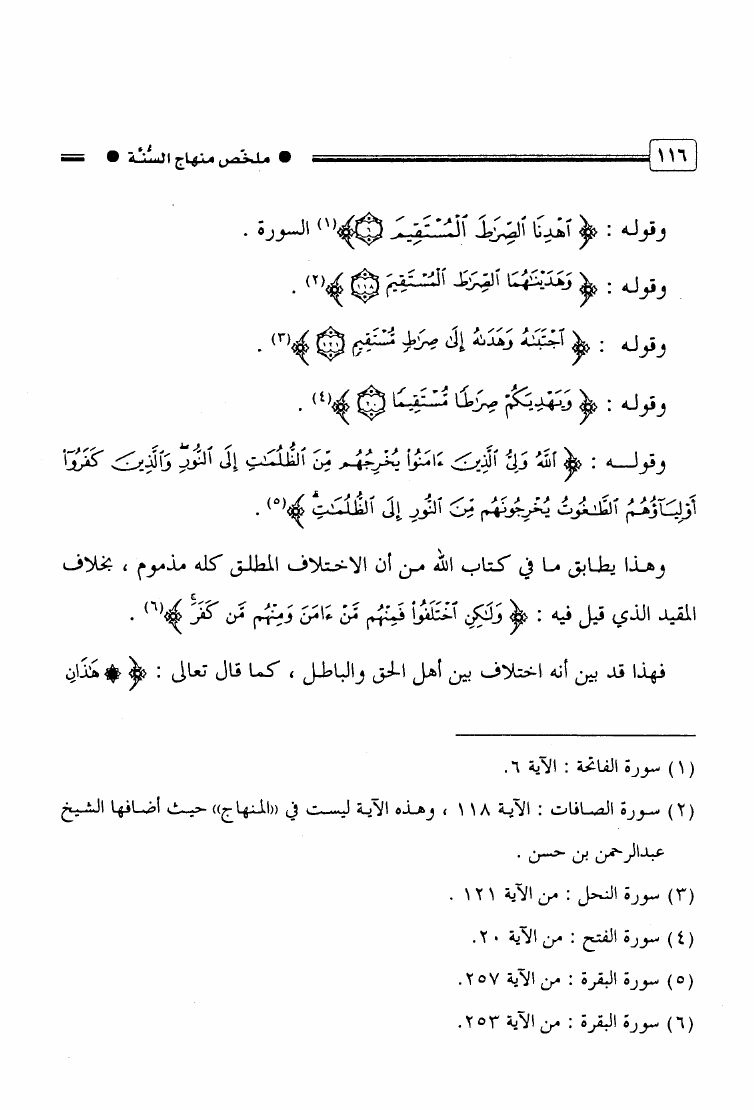 ١١٦ ● ملخّص منهاج السُّنَّة ●
وقوله : ﴿ ٱهْدِنَا ٱلصِّرَٰطَ ٱلْمُسْتَقِيمَ ٦ ﴾(١) السورة .
وقوله : ﴿ وَهَدَيْنَٰهُمَا ٱلصِّرَٰطَ ٱلْمُسْتَقِيمَ ١١٨ ﴾(٢) .
وقوله : ﴿ ٱجْتَبَىٰهُ وَهَدَىٰهُ إِلَىٰ صِرَٰطٍ مُّسْتَقِيمٍ ١٢١ ﴾(٣) .
وقوله : ﴿ وَيَهْدِيَكُمْ صِرَٰطًا مُّسْتَقِيمًا ٢٠ ﴾(٤) .
وقولـه : ﴿ ٱللَّهُ وَلِىُّ ٱلَّذِينَ ءَامَنُوا۟ يُخْرِجُهُم مِّنَ ٱلظُّلُمَٰتِ إِلَى ٱلنُّورِ ۖ وَٱلَّذِينَ كَفَرُوٓا۟
أَوْلِيَآؤُهُمُ ٱلطَّٰغُوتُ يُخْرِجُونَهُم مِّنَ ٱلنُّورِ إِلَى ٱلظُّلُمَٰتِ ۗ ﴾(٥) .
وهـذا يطـابق مـا في كتـاب الله مـن أن الاختـلاف المطلـق كله مذمـوم ، بخلاف
المقيد الذي قيل فيه : ﴿ وَلَٰكِنِ ٱخْتَلَفُوا۟ فَمِنْهُم مَّنْ ءَامَنَ وَمِنْهُم مَّن كَفَرَ ۚ ﴾(٦) .
فهذا قد بين أنه اختلاف بين أهل الحق والباطل ، كما قال تعالى : ﴿ ۞ هَٰذَانِ
(١) سورة الفاتحة : الآية ٦.
(٢) سـورة الصـافات : الآيـة ١١٨ ، وهـذه الآيـة ليسـت في «المنهاج» حيـث أضـافها الشـيخ
عبدالرحمن بن حسن .
(٣) سورة النحل : من الآية ١٢١ .
(٤) سورة الفتح : من الآية ٢٠.
(٥) سورة البقرة : من الآية ٢٥٧.
(٦) سورة البقرة : من الآية ٢٥٣.